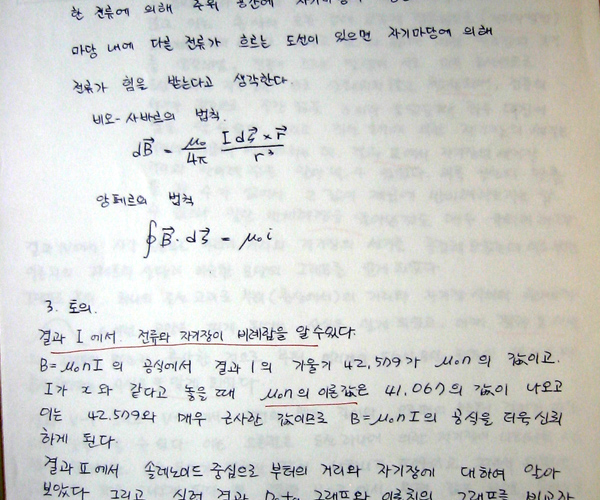 한 전류에 의해 주위 공간에
마당 내에 다른 전류가 흐르는 도선이 있으면 자기마당에 의해
전류가 힘을 받는다고 생각한다
비오-사바르의 법칙.
dB⃗ = μ₀/4π (I dS⃗ × r⃗)/r³
암페르의 법칙
∮B⃗· dS⃗ = μ₀ i
3. 토의.
결과 I 에서 전류와 자기장이 비례함을 알 수 있다.
B=μ₀nI 의 공식에서 결과 1의 기울기 42.579가 μ₀n 의 값이고.
I가 x와 같다고 놓을 때 μ₀n의 이론값은 41.067의 값이 나오고
이는 42.579와 매우 근사한 값이므로 B=μ₀nI의 공식을 더욱 신뢰
하게 된다.
결과 II에서 솔레노이드 중심으로 부터의 거리와 자기장에 대하여 알아
보았다. 그리고 실험 결과 그래프와 이론치의 그래프를 비교